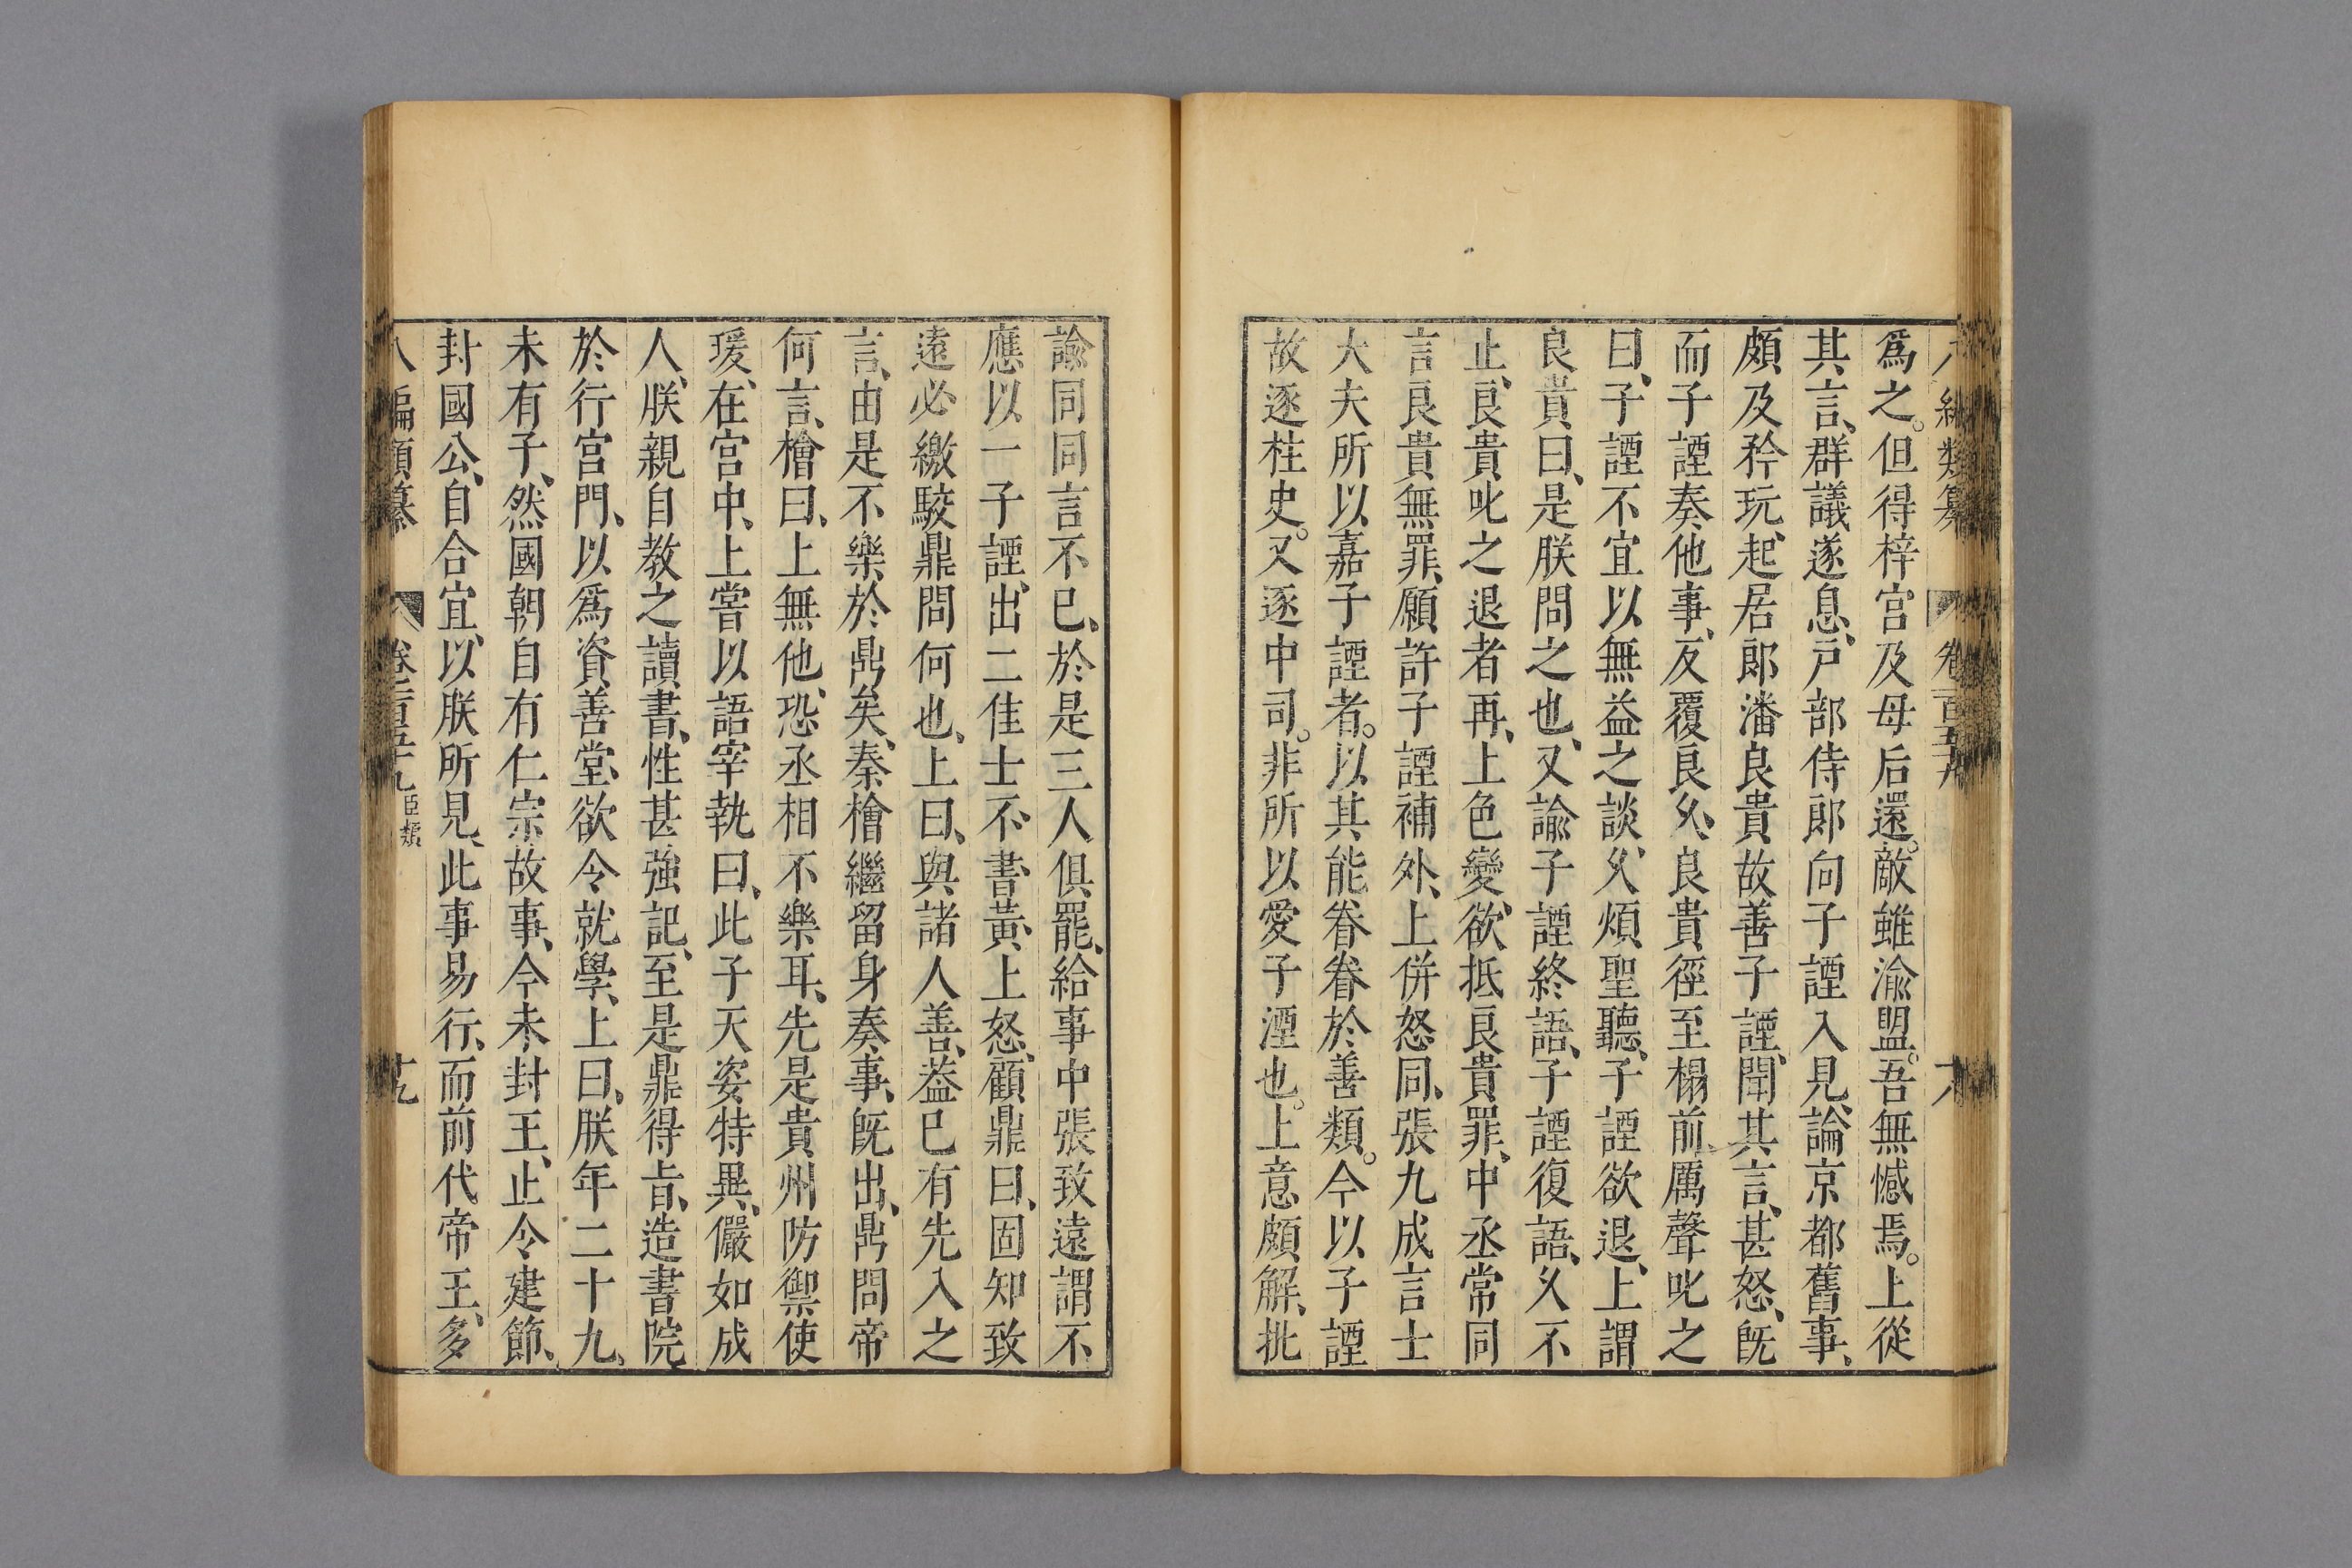 編類纂 卷百五十九
爲之。但得梓宮及母后還。敵雖渝盟。吾無憾焉。上從
其言、群議遂息、戸部侍郎向子諲入見、論京都舊事、
頗及矜玩、起居郎潘良貴、故善子諲、聞其言、甚怒、旣
而子諲奏他事、反覆良久、良貴徑至榻前、厲聲叱之
曰、子諲不宜以無益之談、久煩聖聽、子諲欲退、上謂
良貴曰、是朕問之也、又諭子諲終語、子諲復語、久不
止、良貴叱之退者再、上色變、欲抵良貴罪、中丞常同
言良貴無罪、願許子諲補外、上併怒同、張九成言士
大夫所以嘉子諲者。以其能眷眷於善類。今以子諲
故逐柱史。又逐中司。非所以愛子諲也。上意頗解、批
諭同同言不已、於是三人俱罷、給事中張致遠謂不
應以一子諲、出二佳士、不書黃、上怒、顧鼎曰、固知致
遠必繳駮鼎問何也、上曰、與諸人善、葢已有先入之
言、由是不樂於鼎矣、秦檜繼留身奏事、旣出、鼎問帝
何言、檜曰、上無他、恐丞相不樂耳、先是貴州防禦使
瑗、在宮中、上嘗以語宰執曰、此子天姿特異、儼如成
人、朕親自教之讀書、性甚強記、至是鼎得旨、造書院
於行宮門、以爲資善堂、欲令就學、上曰、朕年二十九、
未有子、然國朝自有仁宗故事、今未封王、止令建節、
封國公、自合宜、以朕所見、此事易行、而前代帝王、多
八編類纂 卷百五十九 臣類 十九